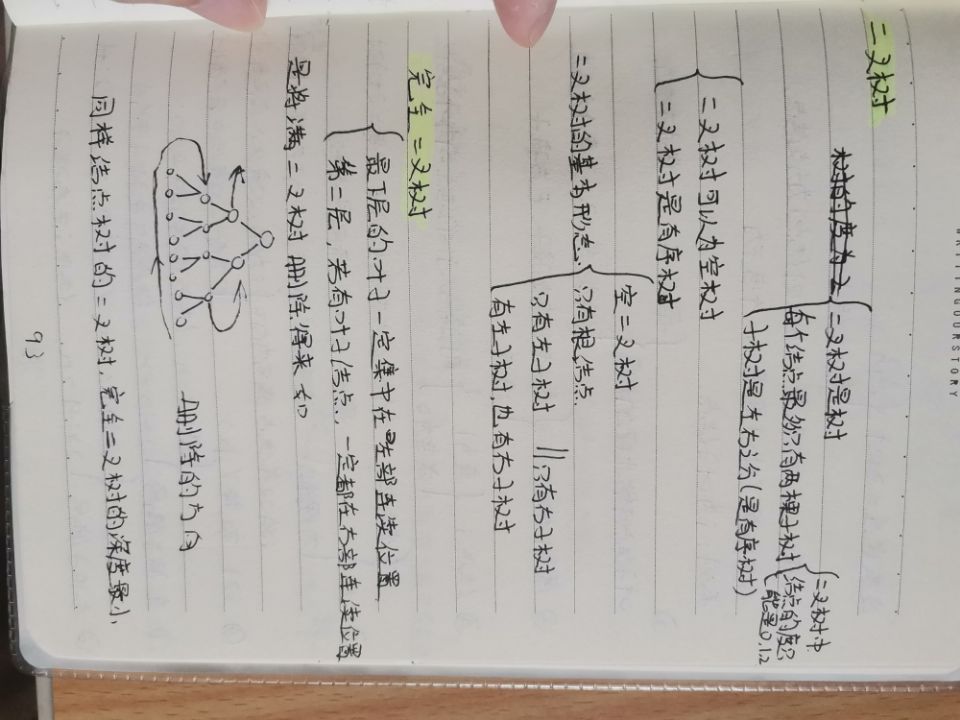 WRITINGOURSTORY
二叉树
树的度为2
二叉树是树
每个结点最多只有两棵子树
二叉树中
结点的度只
能是0.1.2
子树是左右之分(是有序树)
二叉树可以为空树
二叉树是有序树
二叉树的基本形态
空二叉树
只有根结点
只有左子树 || 只有右子树
有左子树,也有右子树
完全二叉树
最下层的叶子一定集中在左部连续位置
第二层,若有叶子结点,一定都在右部连续位置
是将满二叉树删除得来 如
删除的方向
同样结点树的二叉树,完全二叉树的深度最小
93